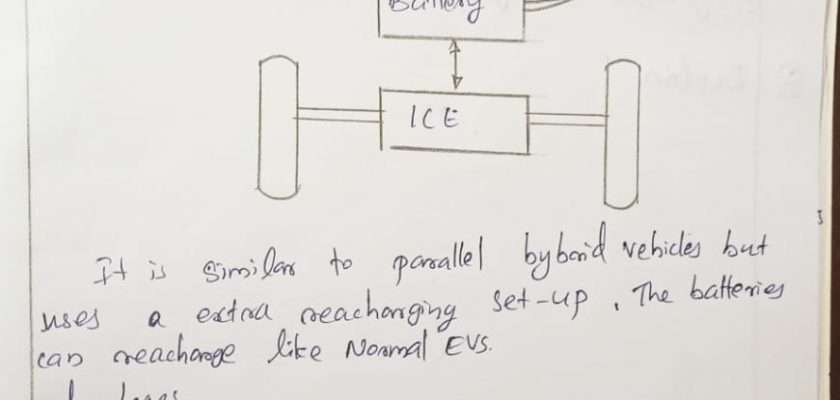 Battery
ICE
It is similar to parallel hybrid vehicles but
uses a extra reacharging set-up. The batteries
can reacharge like Normal EVS.